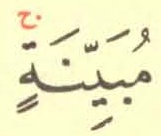 ج
مُبَيِّنَةٍ